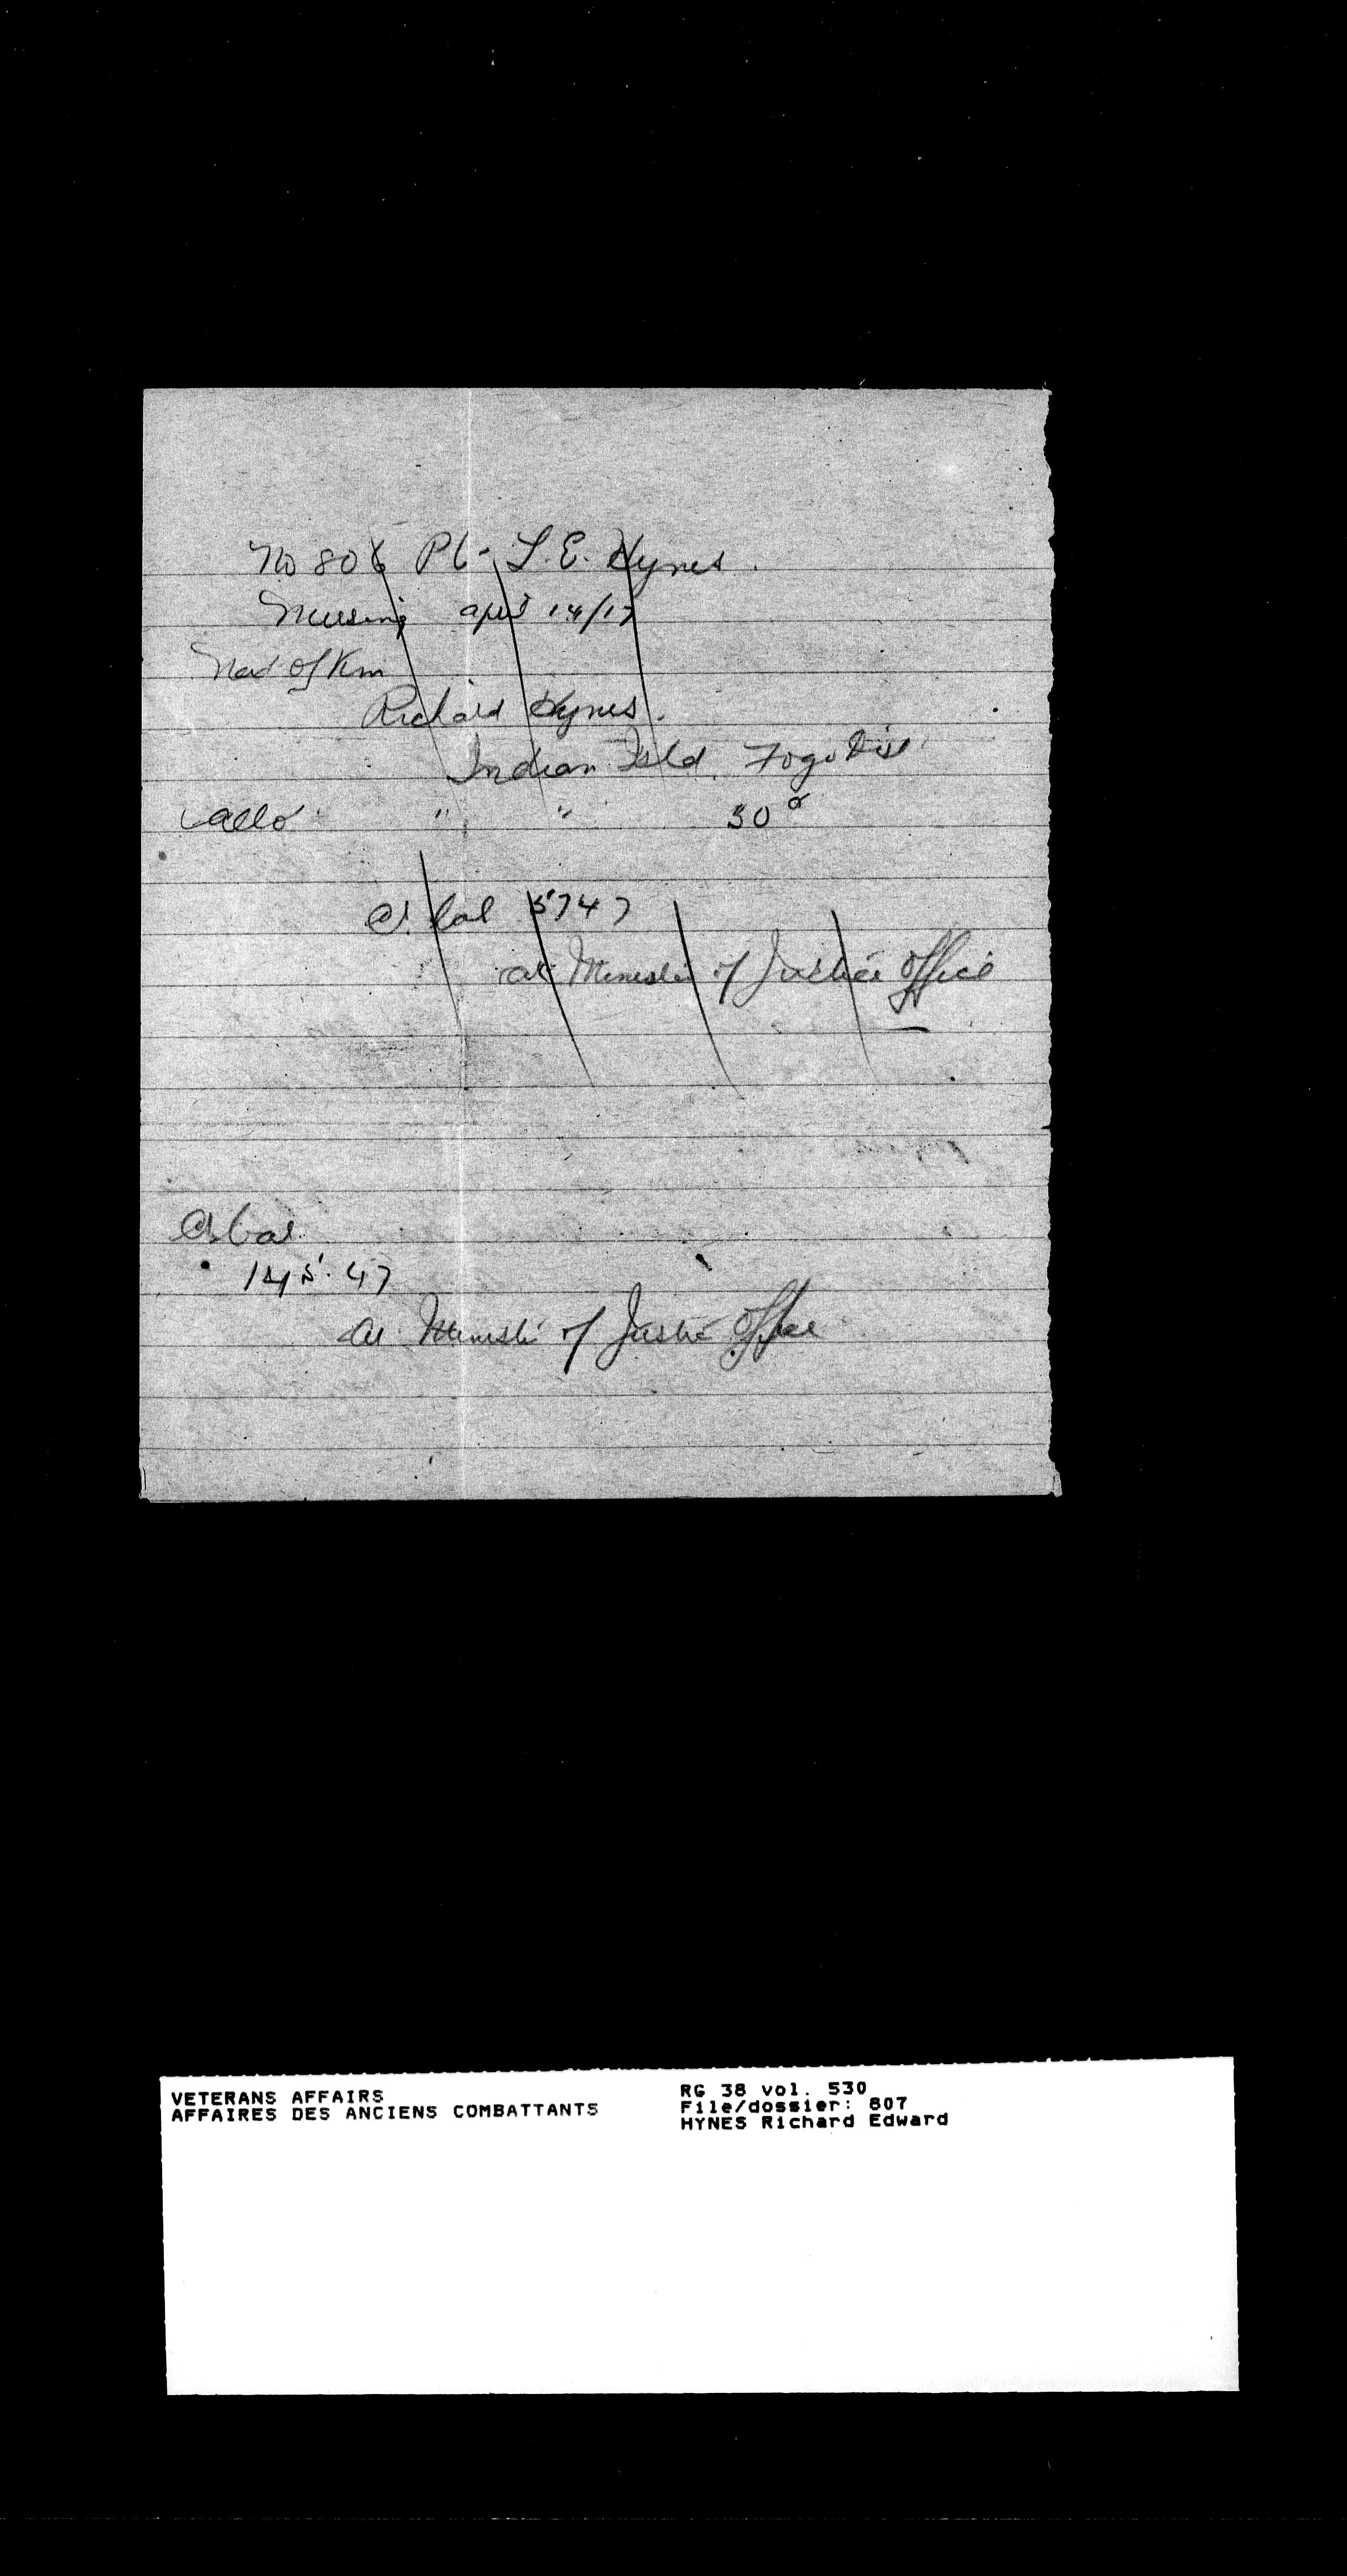 No 806 Pt. L. E. Hynes.
Missing April 14/17
Next of Kin
Richard Hynes.
Indian Isld. Fogo Dist
Allot " " 30
Cr. Bal 5747
at Minister of Justice Office
Cr Bal
145.47
at Minister of Justice Office
VETERANS AFFAIRS
AFFAIRES DES ANCIENS COMBATTANTS
RG 38 vol. 530
File/dossier: 807
HYNES Richard Edward